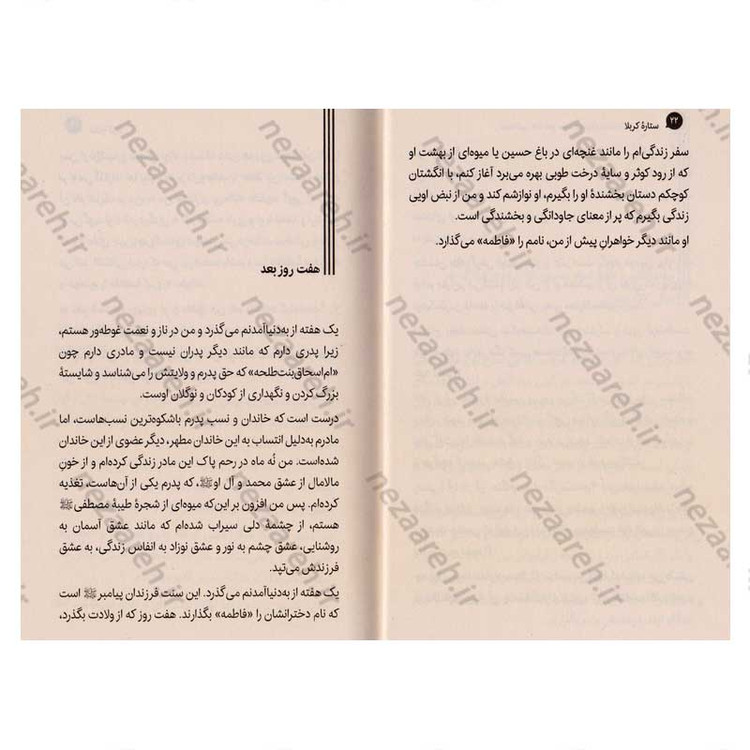 ۲۲ ستارهٔ کربلا
سفر زندگی‌ام را مانند غنچه‌ای در باغ حسین یا میوه‌ای از بهشت او
که از رود کوثر و سایهٔ درخت طوبی بهره می‌برد آغاز کنم، با انگشتان
کوچکم دستان بخشندهٔ او را بگیرم، او نوازشم کند و من از نبض اویی
زندگی بگیرم که پر از معنای جاودانگی و بخشندگی است.
او مانند دیگر خواهرانِ پیش از من، نامم را «فاطمه» می‌گذارد.
هفت روز بعد
یک هفته از به‌دنیاآمدنم می‌گذرد و من در ناز و نعمت غوطه‌ور هستم،
زیرا پدری دارم که مانند دیگر پدران نیست و مادری دارم چون
«ام‌اسحاق‌بنت‌طلحه» که حق پدرم و ولایتش را می‌شناسد و شایستهٔ
بزرگ کردن و نگهداری از کودکان و نوگلان اوست.
درست است که خاندان و نسب پدرم باشکوه‌ترین نسب‌هاست، اما
مادرم به‌دلیل انتساب به این خاندان مطهر، دیگر عضوی از این خاندان
شده‌است. من نُه ماه در رحم پاک این مادر زندگی کرده‌ام و از خونِ
مالامال از عشق محمد و آل اوﷺ، که پدرم یکی از آن‌هاست، تغذیه
کرده‌ام. پس من افزون بر این‌که میوه‌ای از شجرهٔ طیبهٔ مصطفیﷺ
هستم، از چشمهٔ دلی سیراب شده‌ام که مانند عشق آسمان به
روشنایی، عشق چشم به نور و عشق نوزاد به انفاس زندگی، به عشق
فرزندش می‌تپد.
یک هفته از به‌دنیاآمدنم می‌گذرد. این سنت فرزندان پیامبرﷺ است
که نام دخترانشان را «فاطمه» بگذارند. هفت روز که از ولادت بگذرد،
nezaareh.ir
nezaareh.ir
nezaareh.ir
nezaareh.ir
nezaareh.ir
nezaareh.ir
nezaareh.ir
nezaareh.ir